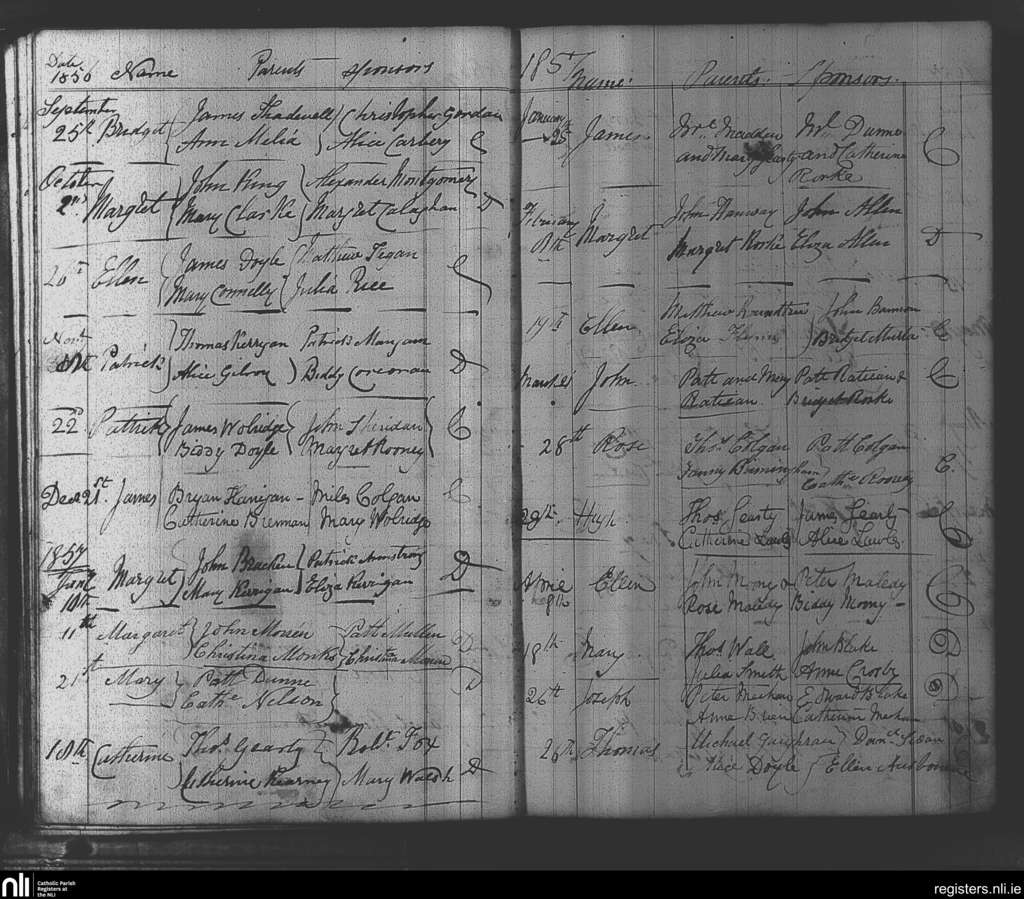 Date
1856 Name Parents Sponsors
September
25th Bredget James Shadwell Christopher Gordan
Ann Melia Alice Carbery C
October
2nd Margret John King Alexander Montgomery
Mary Clarke Margret Calaghan D
26th Ellen James Doyle Mathew Fegan
Mary Connelly Julia Rice C
Novr
Patrick Thomas Kerrgan Patrick Mangan
Alice Gilroy Biddy Corcoran D
22 Patrick James Wolridge John Sheridan C
Biddy Doyle Margret Rooney
Decr 21st James Bryan Hanigan - Miles Colgan C
Catherine Brennan Mary Wolridge
1857
Jany 10th Margret John Bracken Patrick Armstrong D
Mary Kerrigan Eliza Kerrigan
11th Margaret John Morren Patt Mullen D
Christina Monks Christina
21st Mary Patt Dunne D
Cathe Nelson
18th Catherine Thos Gearty Robt Fox
Catherine Kearney Mary Walsh D
1857 Name Parents. Sponsors.
January
25th James Wm Madden Wm Dunne C
and Mary Gearty and Catherine
Rorke
February
8th Margret John Hanway John Allen
Margret Rorke Eliza Allen D
19th Ellen Matthew Rountree John Bannon
Eliza Flynn Bridget Murta C
March 25 John Patt and Mary Patt Ratican & C
Ratican Bridget Rorke
28th Rose Thos Colgan Patt Colgan
Fanny Birmingham Cathe Rooney C.
29th Hugh Thos Gearty James Gearty C
Catherine Lawls Alice Lawls
Aprie
8th Ellen John Mony & Peter Maledy C
Rose Maledy Biddy Moony -
18th Mary Thos Wall John Blake D
Julia Smith Anne Crosby
26th Joseph Peter Meehan Edward Blake D
Anne Brien Catherine Meehan
26th Thomas Michael Gaughran Danl
Alice Doyle Ellen
nli Catholic Parish
Registers at
the NLI
registers.nli.ie